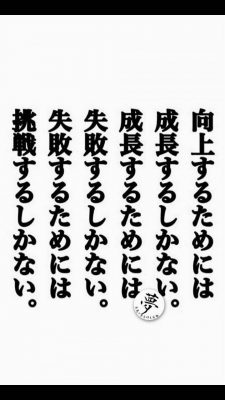 向上するためには
成長するしかない。
成長するためには
失敗するしかない。
失敗するためには
挑戦するしかない。
夢